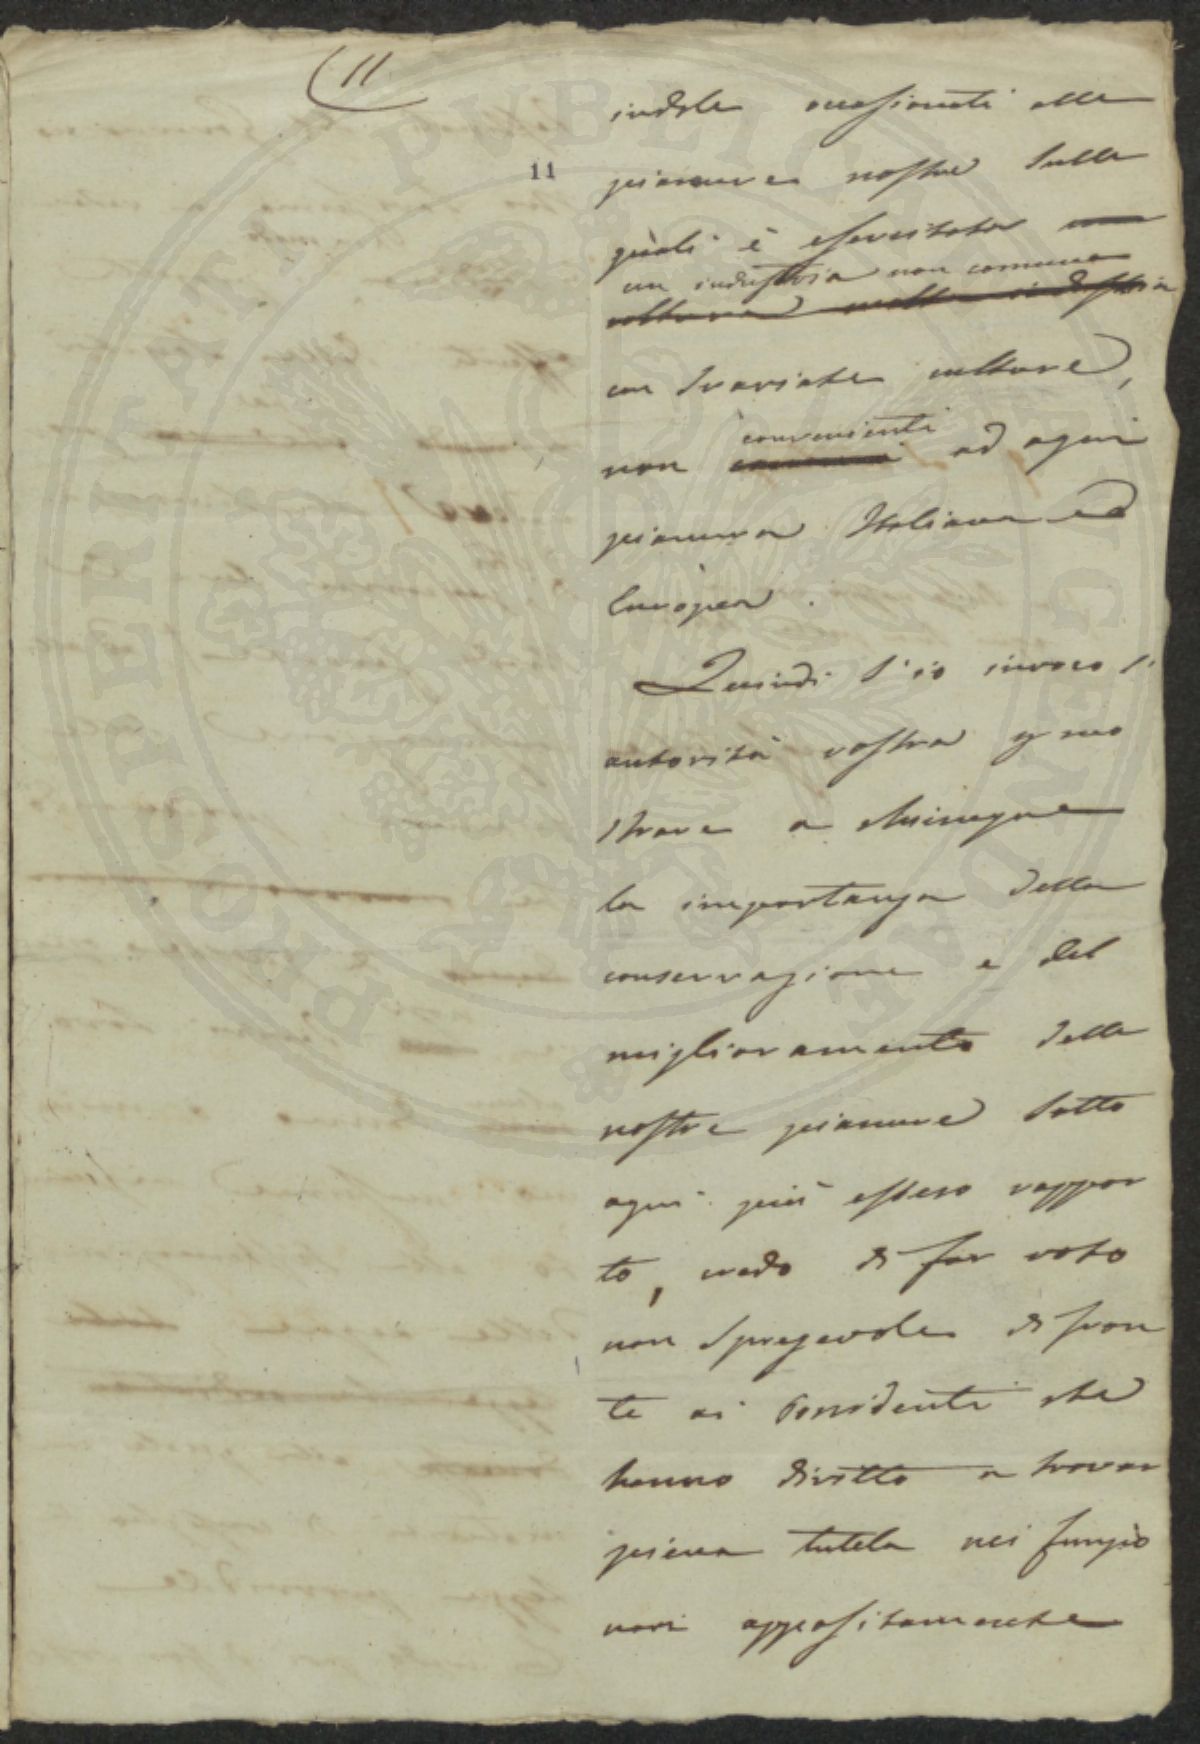 11
11
indole occasionati alle
pianure nostre sulle
quali è esercitata
un industria non comune
coltura molta industria
con svariate culture,
convenienti
non comuni ad ogni
pianura Italiana ed
Europea.
Quindi s'io invoco l'
autorità vostra p mo
strare a chiunque
la importanza della
conservazione e del
miglioramento delle
nostre pianure sotto
ogni più esteso rappor
to, credo di far voto
non spregevole di fron
te ai Possidenti che
hanno diritto a trovar
piena tutela nei funzio
nari appositamente
PROSPERITATI PVBLICAE AVGENDAE